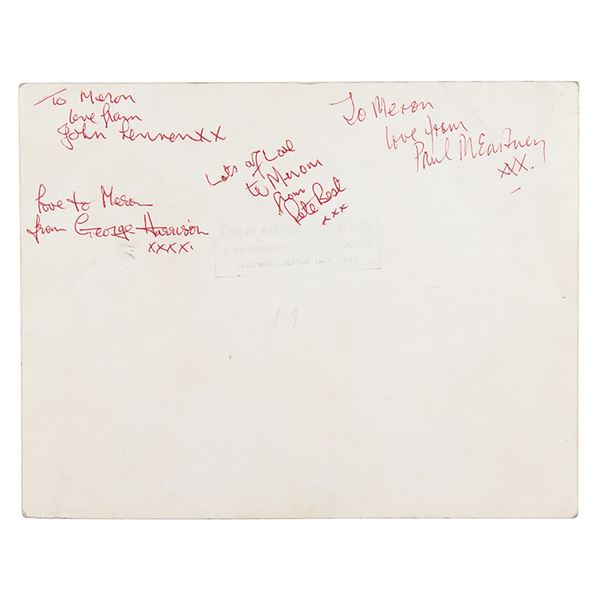 To Meron
love from
John Lennon XX
To Meron
love from
Paul McCartney
XX.
Lots of Love
to Merom
from
Pete Best
xxx
love to Meron
from George Harrison
xxxx.
TELEPHONE SEFTON PARK
M.